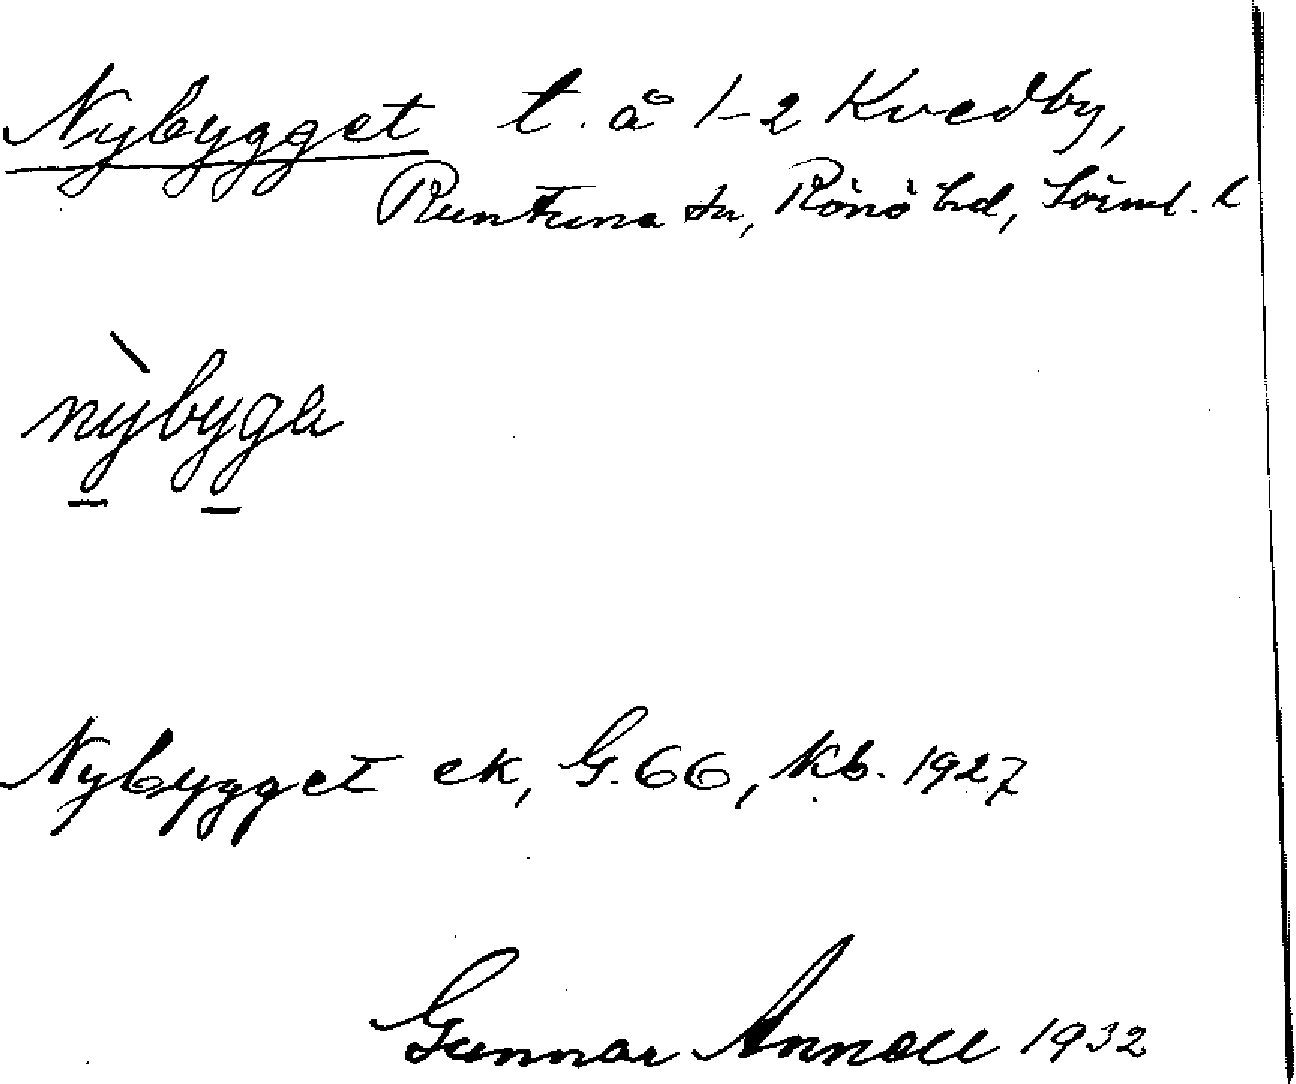 Nybygget t. å 1-2 Kvedby,
Runtuna sn, Rönö hd, Sörml. l
nỳbyga
Nybygget ek, G. 66, kb. 1927
Gunnar Annell 1932